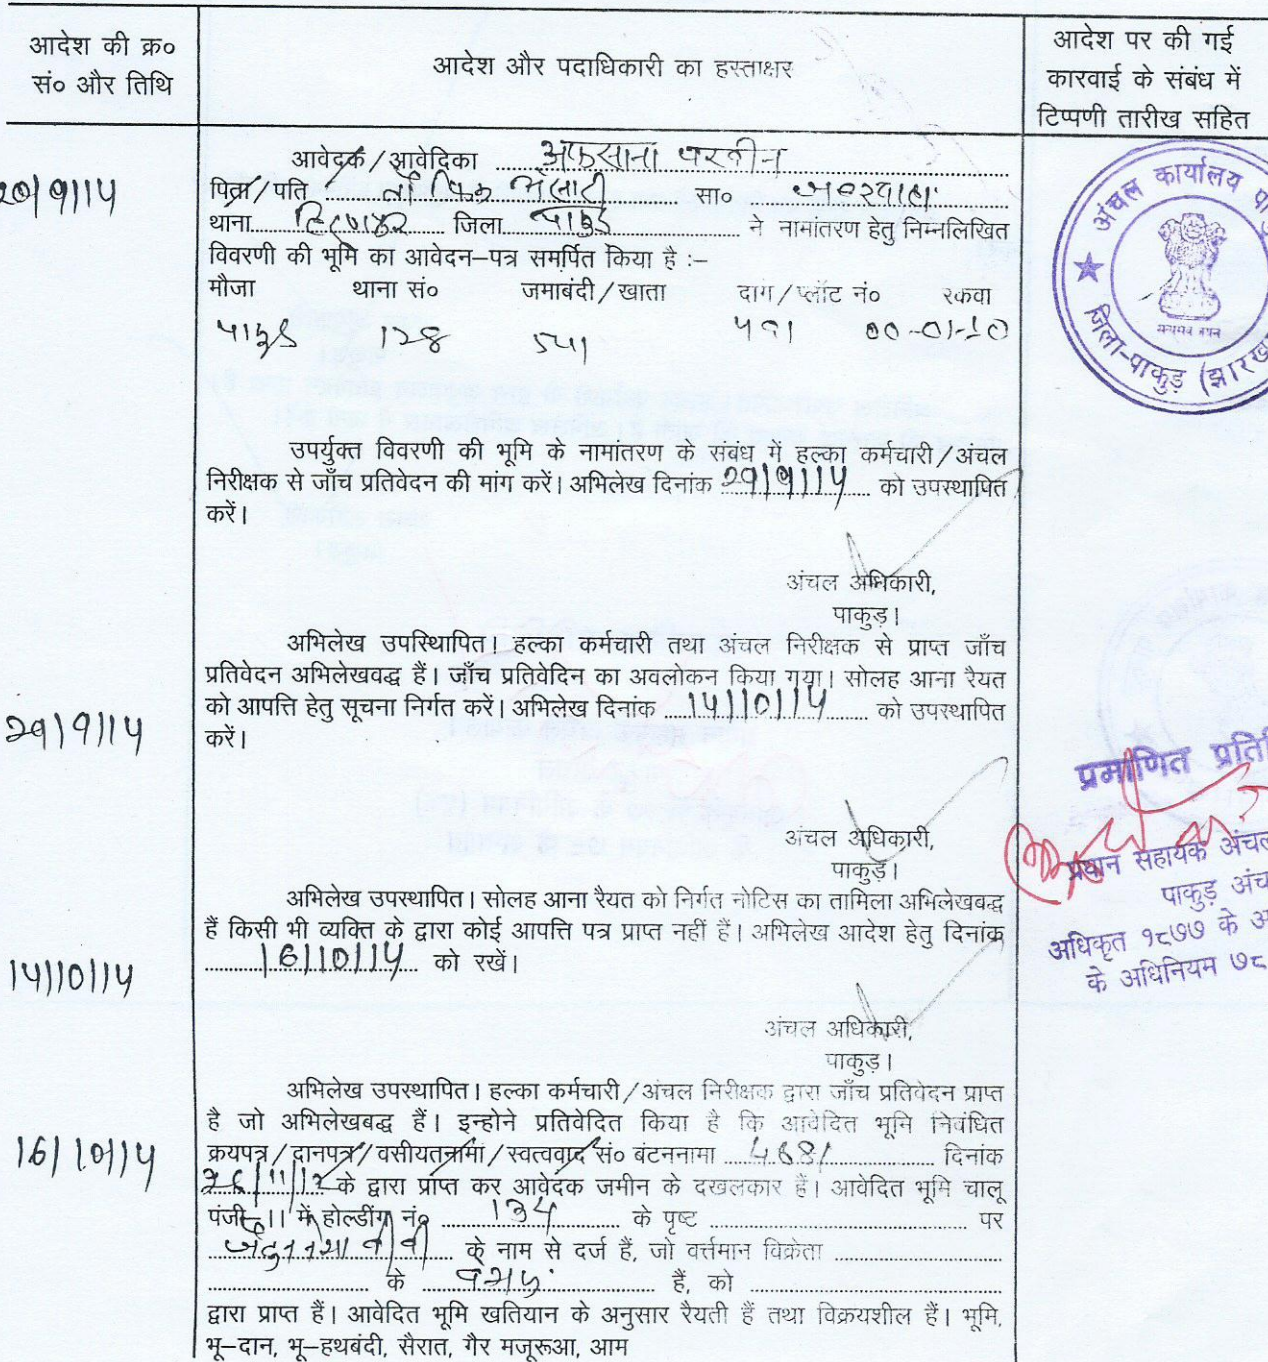 आदेश की क्र०
सं० और तिथि
आदेश और पदाधिकारी का हस्ताक्षर
आदेश पर की गई
कारवाई के संबंध में
टिप्पणी तारीख सहित
आवेदक / आवेदिका अफसाना परवीन
20/9/14
पिता / पति सा०
थाना जिला पाकुड़ ने नामांतरण हेतु निम्नलिखित
विवरणी की भूमि का आवेदन–पत्र समर्पित किया है :–
मौजा थाना सं० जमाबंदी / खाता दाग / प्लॉट नं० रकवा
पाकुड़ 128 541 491 00-01-10
अंचल कार्यालय
जिला-पाकुड़ (झारख
उपर्युक्त विवरणी की भूमि के नामांतरण के संबंध में हल्का कर्मचारी / अंचल
निरीक्षक से जाँच प्रतिवेदन की मांग करें। अभिलेख दिनांक 29/9/14 को उपस्थापित
करें।
अंचल अधिकारी,
पाकुड़।
29/9/14
अभिलेख उपस्थिापित। हल्का कर्मचारी तथा अंचल निरीक्षक से प्राप्त जाँच
प्रतिवेदन अभिलेखवद्ध हैं। जाँच प्रतिवेदिन का अवलोकन किया गया। सोलह आना रैयत
को आपत्ति हेतु सूचना निर्गत करें। अभिलेख दिनांक 14/10/14 को उपस्थापित
करें।
अंचल अधिकारी,
पाकुड़।
प्रमाणित प्रति
प्रधान सहायक अंचल
पाकुड़ अंच
अधिकृत १८७७ के अ
के अधिनियम ७८
14/10/14
अभिलेख उपस्थापित। सोलह आना रैयत को निर्गत नोटिस का तामिला अभिलेखवद्ध
हैं किसी भी व्यक्ति के द्वारा कोई आपत्ति पत्र प्राप्त नहीं हैं। अभिलेख आदेश हेतु दिनांक
16/10/14 को रखें।
अंचल अधिकारी,
पाकुड़।
16/10/14
अभिलेख उपस्थापित। हल्का कर्मचारी / अंचल निरीक्षक द्वारा जाँच प्रतिवेदन प्राप्त
है जो अभिलेखबद्ध हैं। इन्होने प्रतिवेदित किया है कि आवेदित भूमि निवंधित
क्रयपत्र / दानपत्र / वसीयतनामा / स्वत्ववाद सं० बंटननामा 468/ दिनांक
के द्वारा प्राप्त कर आवेदक जमीन के दखलकार हैं। आवेदित भूमि चालू
पंजी–।। में होल्डींग नं० 134 के पृष्ट पर
बीबी के नाम से दर्ज हैं, जो वर्त्तमान विक्रेता
के हैं, को
द्वारा प्राप्त हैं। आवेदित भूमि खतियान के अनुसार रैयती हैं तथा विक्रयशील हैं। भूमि,
भू–दान, भू–हथबंदी, सैरात, गैर मजूरूआ, आम